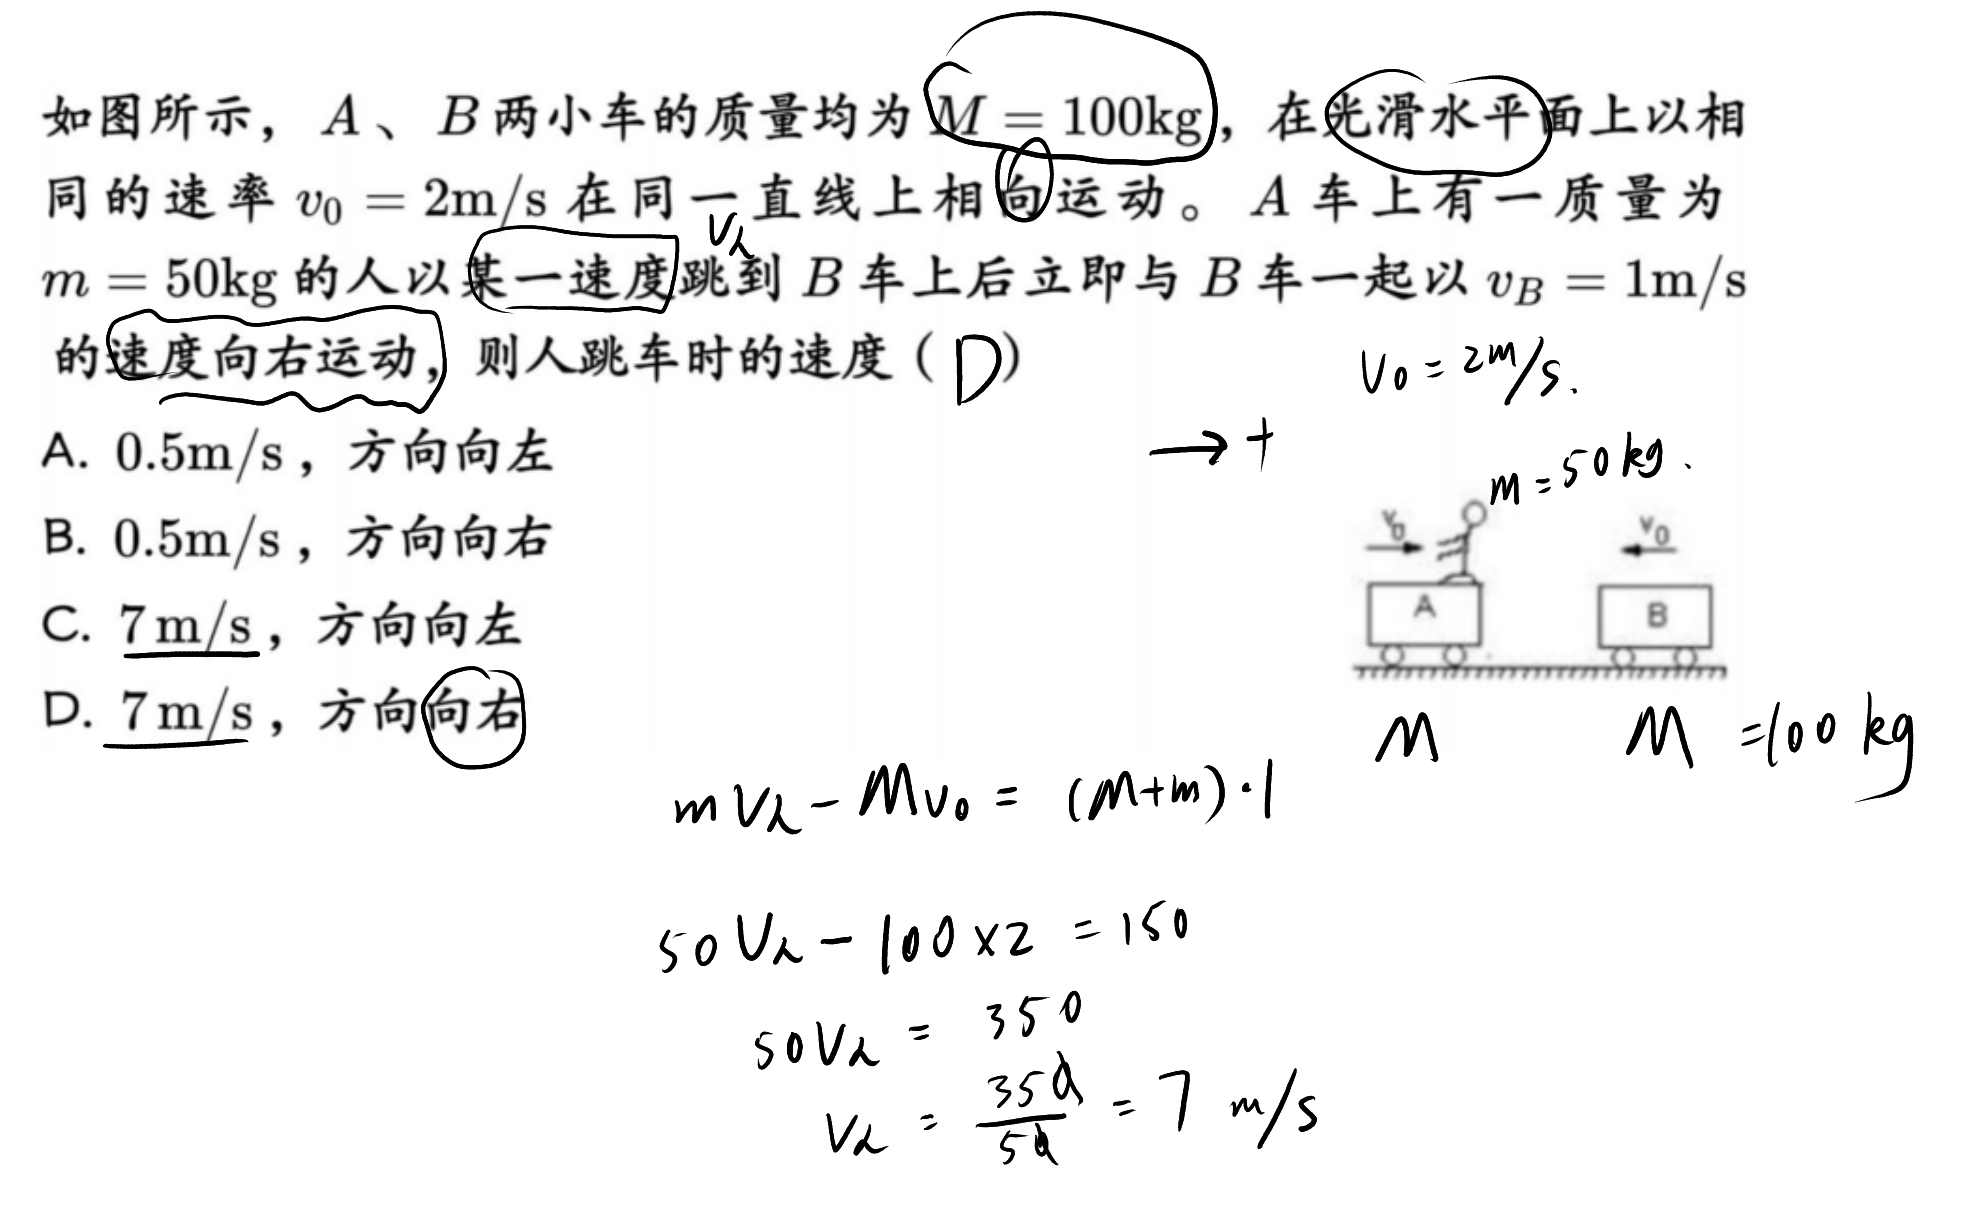 如图所示，A、B两小车的质量均为 M = 100kg，在光滑水平面上以相
同的速率 v₀ = 2m/s 在同一直线上相向运动。A 车上有一质量为
V人
m = 50kg 的人以某一速度跳到 B 车上后立即与 B 车一起以 v_B = 1m/s
的速度向右运动，则人跳车时的速度（ D ）
V₀ = 2m/s.
A. 0.5m/s，方向向左
→ +
m = 50kg.
B. 0.5m/s，方向向右
v₀ v₀
C. 7m/s，方向向左
A B
D. 7m/s，方向向右
M M = 100 kg
mV人 - Mv₀ = (M+m)·1
50V人 - 100×2 = 150
50V人 = 350
V人 = 350/50 = 7 m/s